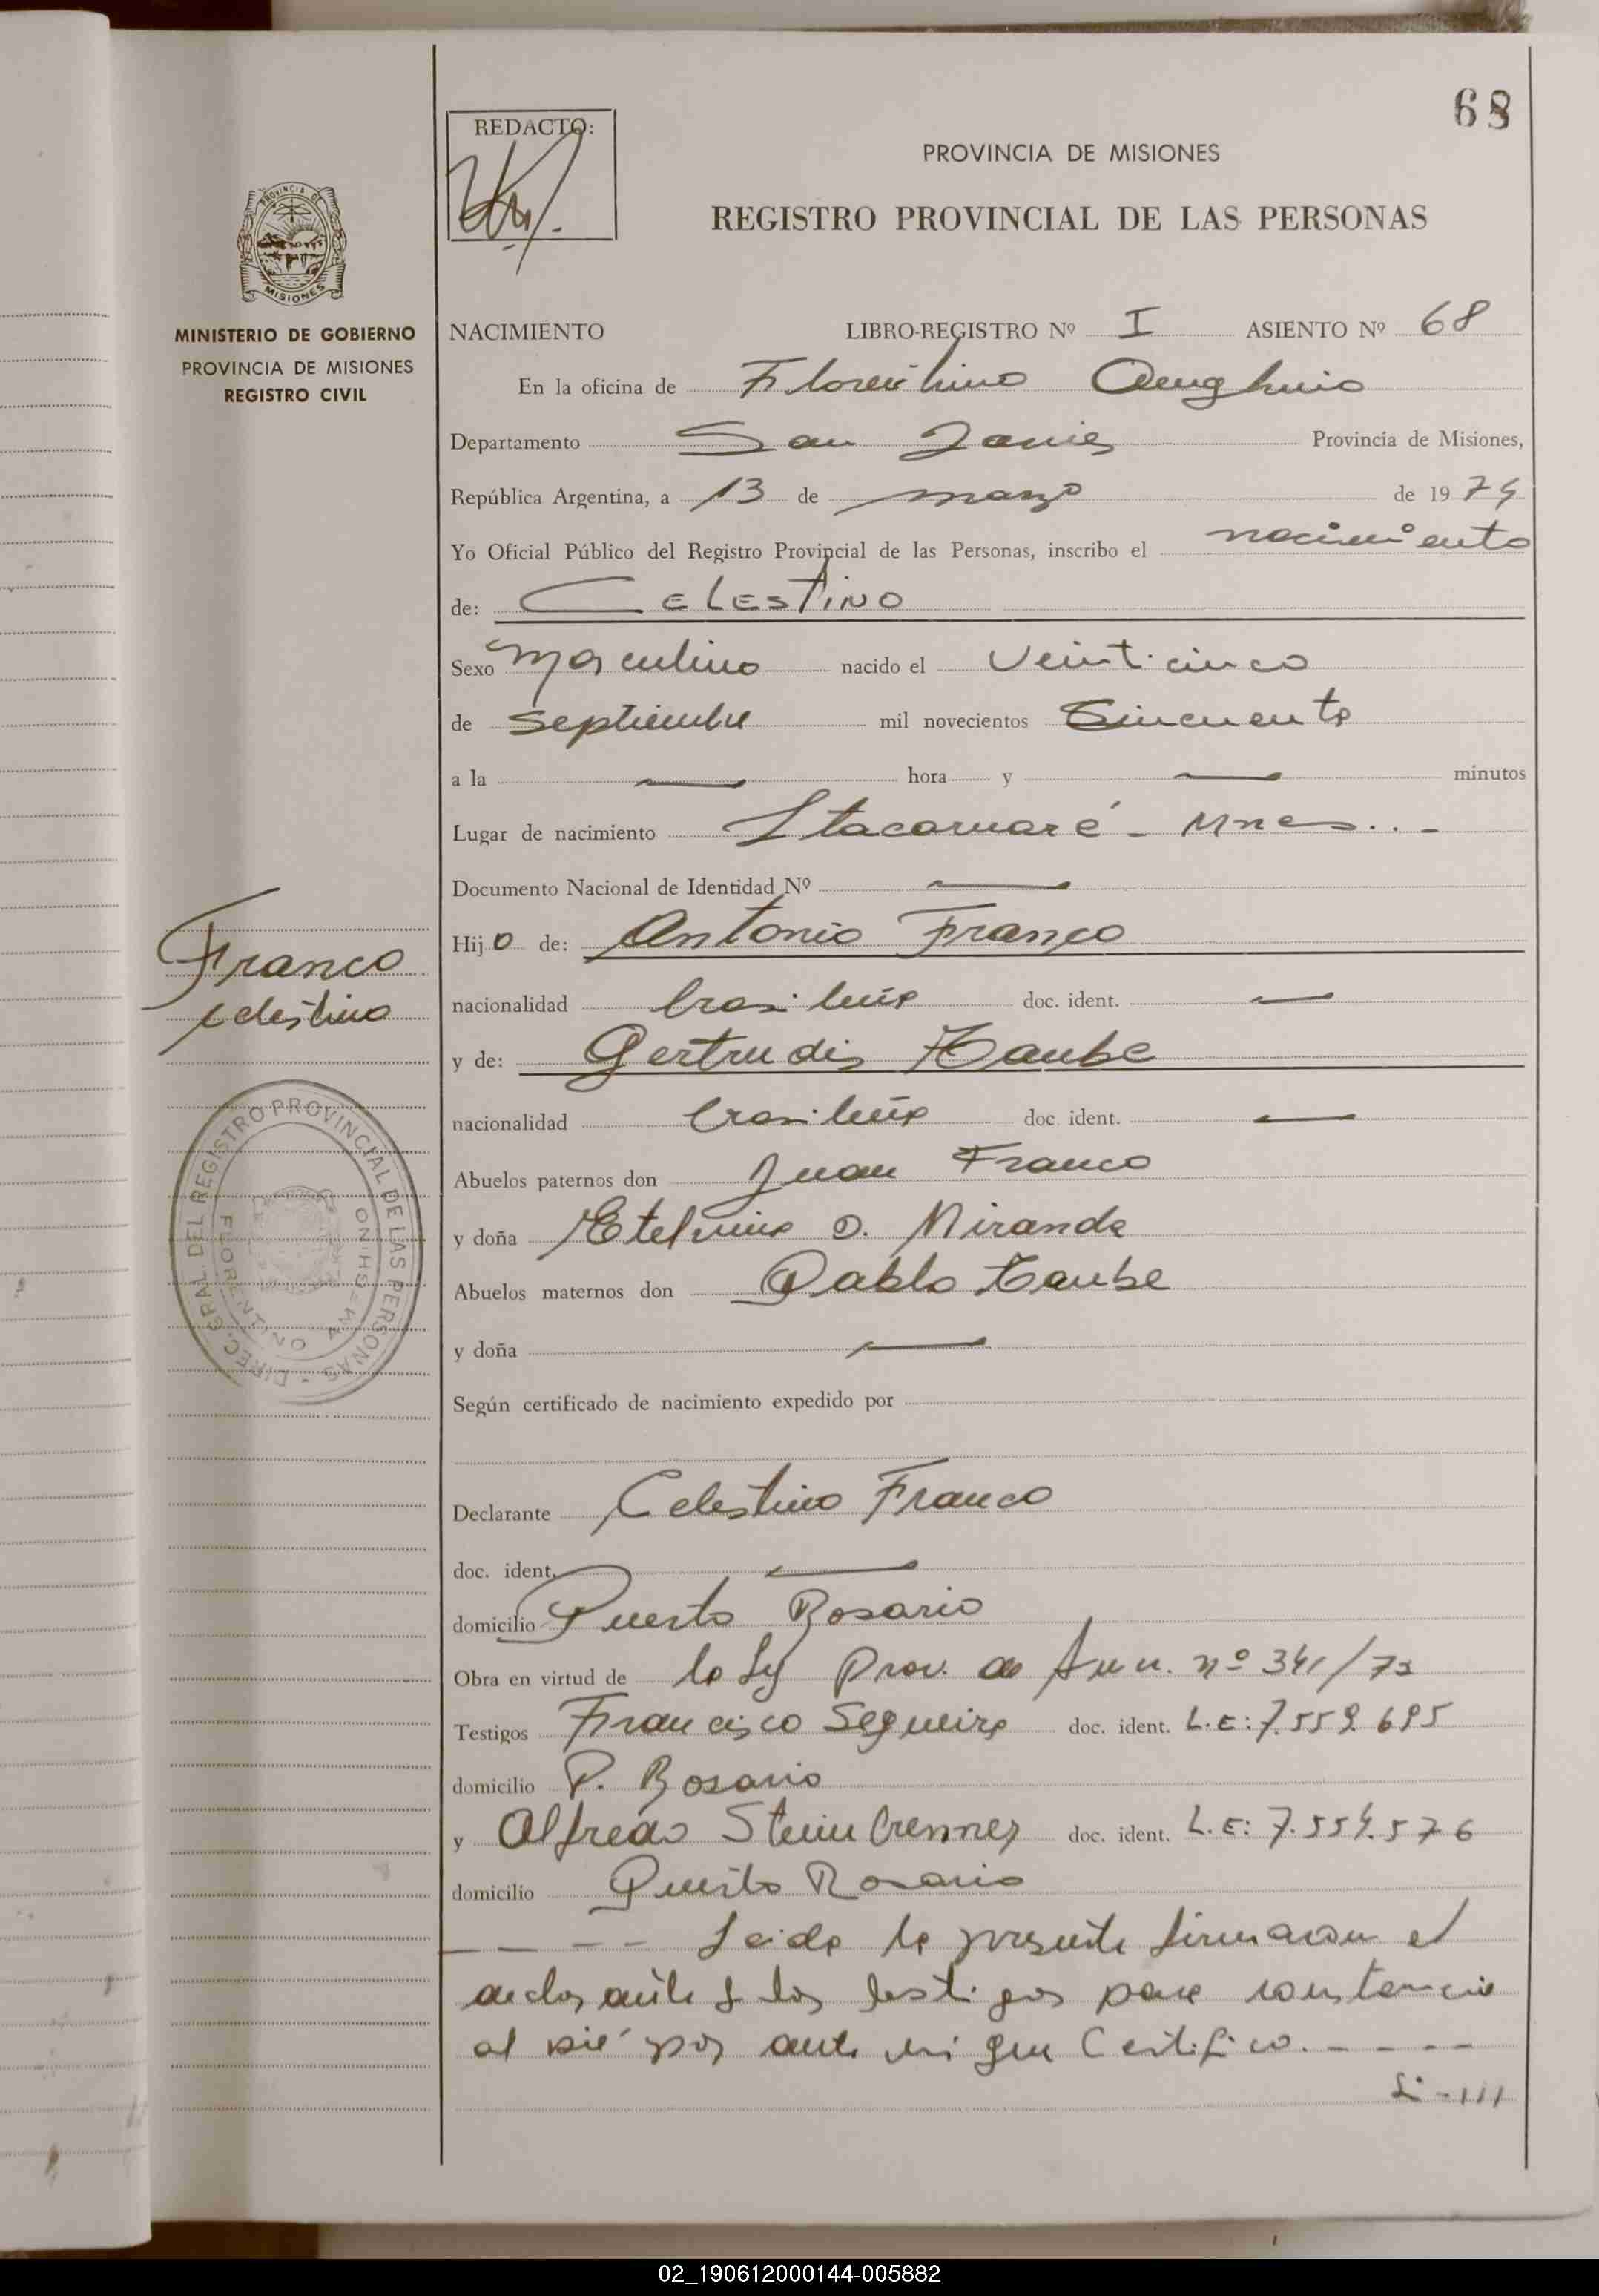 68
REDACTO:
PROVINCIA DE MISIONES
REGISTRO PROVINCIAL DE LAS PERSONAS
PROVINCIA DE
MISIONES
MINISTERIO DE GOBIERNO
PROVINCIA DE MISIONES
REGISTRO CIVIL
NACIMIENTO LIBRO-REGISTRO Nº I ASIENTO Nº 68
En la oficina de Florentino Ameghino
Departamento San Javier Provincia de Misiones,
República Argentina, a 13 de marzo de 1974
Yo Oficial Público del Registro Provincial de las Personas, inscribo el nacimiento
de: CELESTINO
Sexo Masculino nacido el Veinticinco
de Septiembre mil novecientos Cincuenta
a la — hora y — minutos
Lugar de nacimiento Itacaruaré - Mnes..-
Documento Nacional de Identidad Nº —
Hijo de: Antonio Franco
Franco
Celestino
nacionalidad brasileña doc. ident. —
y de: Gertrudis Taube
nacionalidad brasileña doc. ident. —
Abuelos paternos don Juan Franco
y doña Etelvina D. Miranda
Abuelos maternos don Pablo Taube
y doña —
DIREC. GRAL. DEL REGISTRO PROVINCIAL DE LAS PERSONAS
FLORENTINO AMEGHINO
Según certificado de nacimiento expedido por
Declarante Celestino Franco
doc. ident. —
domicilio Puerto Rosario
Obra en virtud de la Ley Prov. de Amn. nº 341/73
Testigos Francisco Segueira doc. ident. L.E: 7.559.695
domicilio P. Rosario
y Alfredo Steinbrenner doc. ident. L.E: 7.554.576
domicilio Puerto Rosario
---- Leida la presente firmaron el
declarante y los testigos para constancia
al pié por ante mi que Certifico. ----